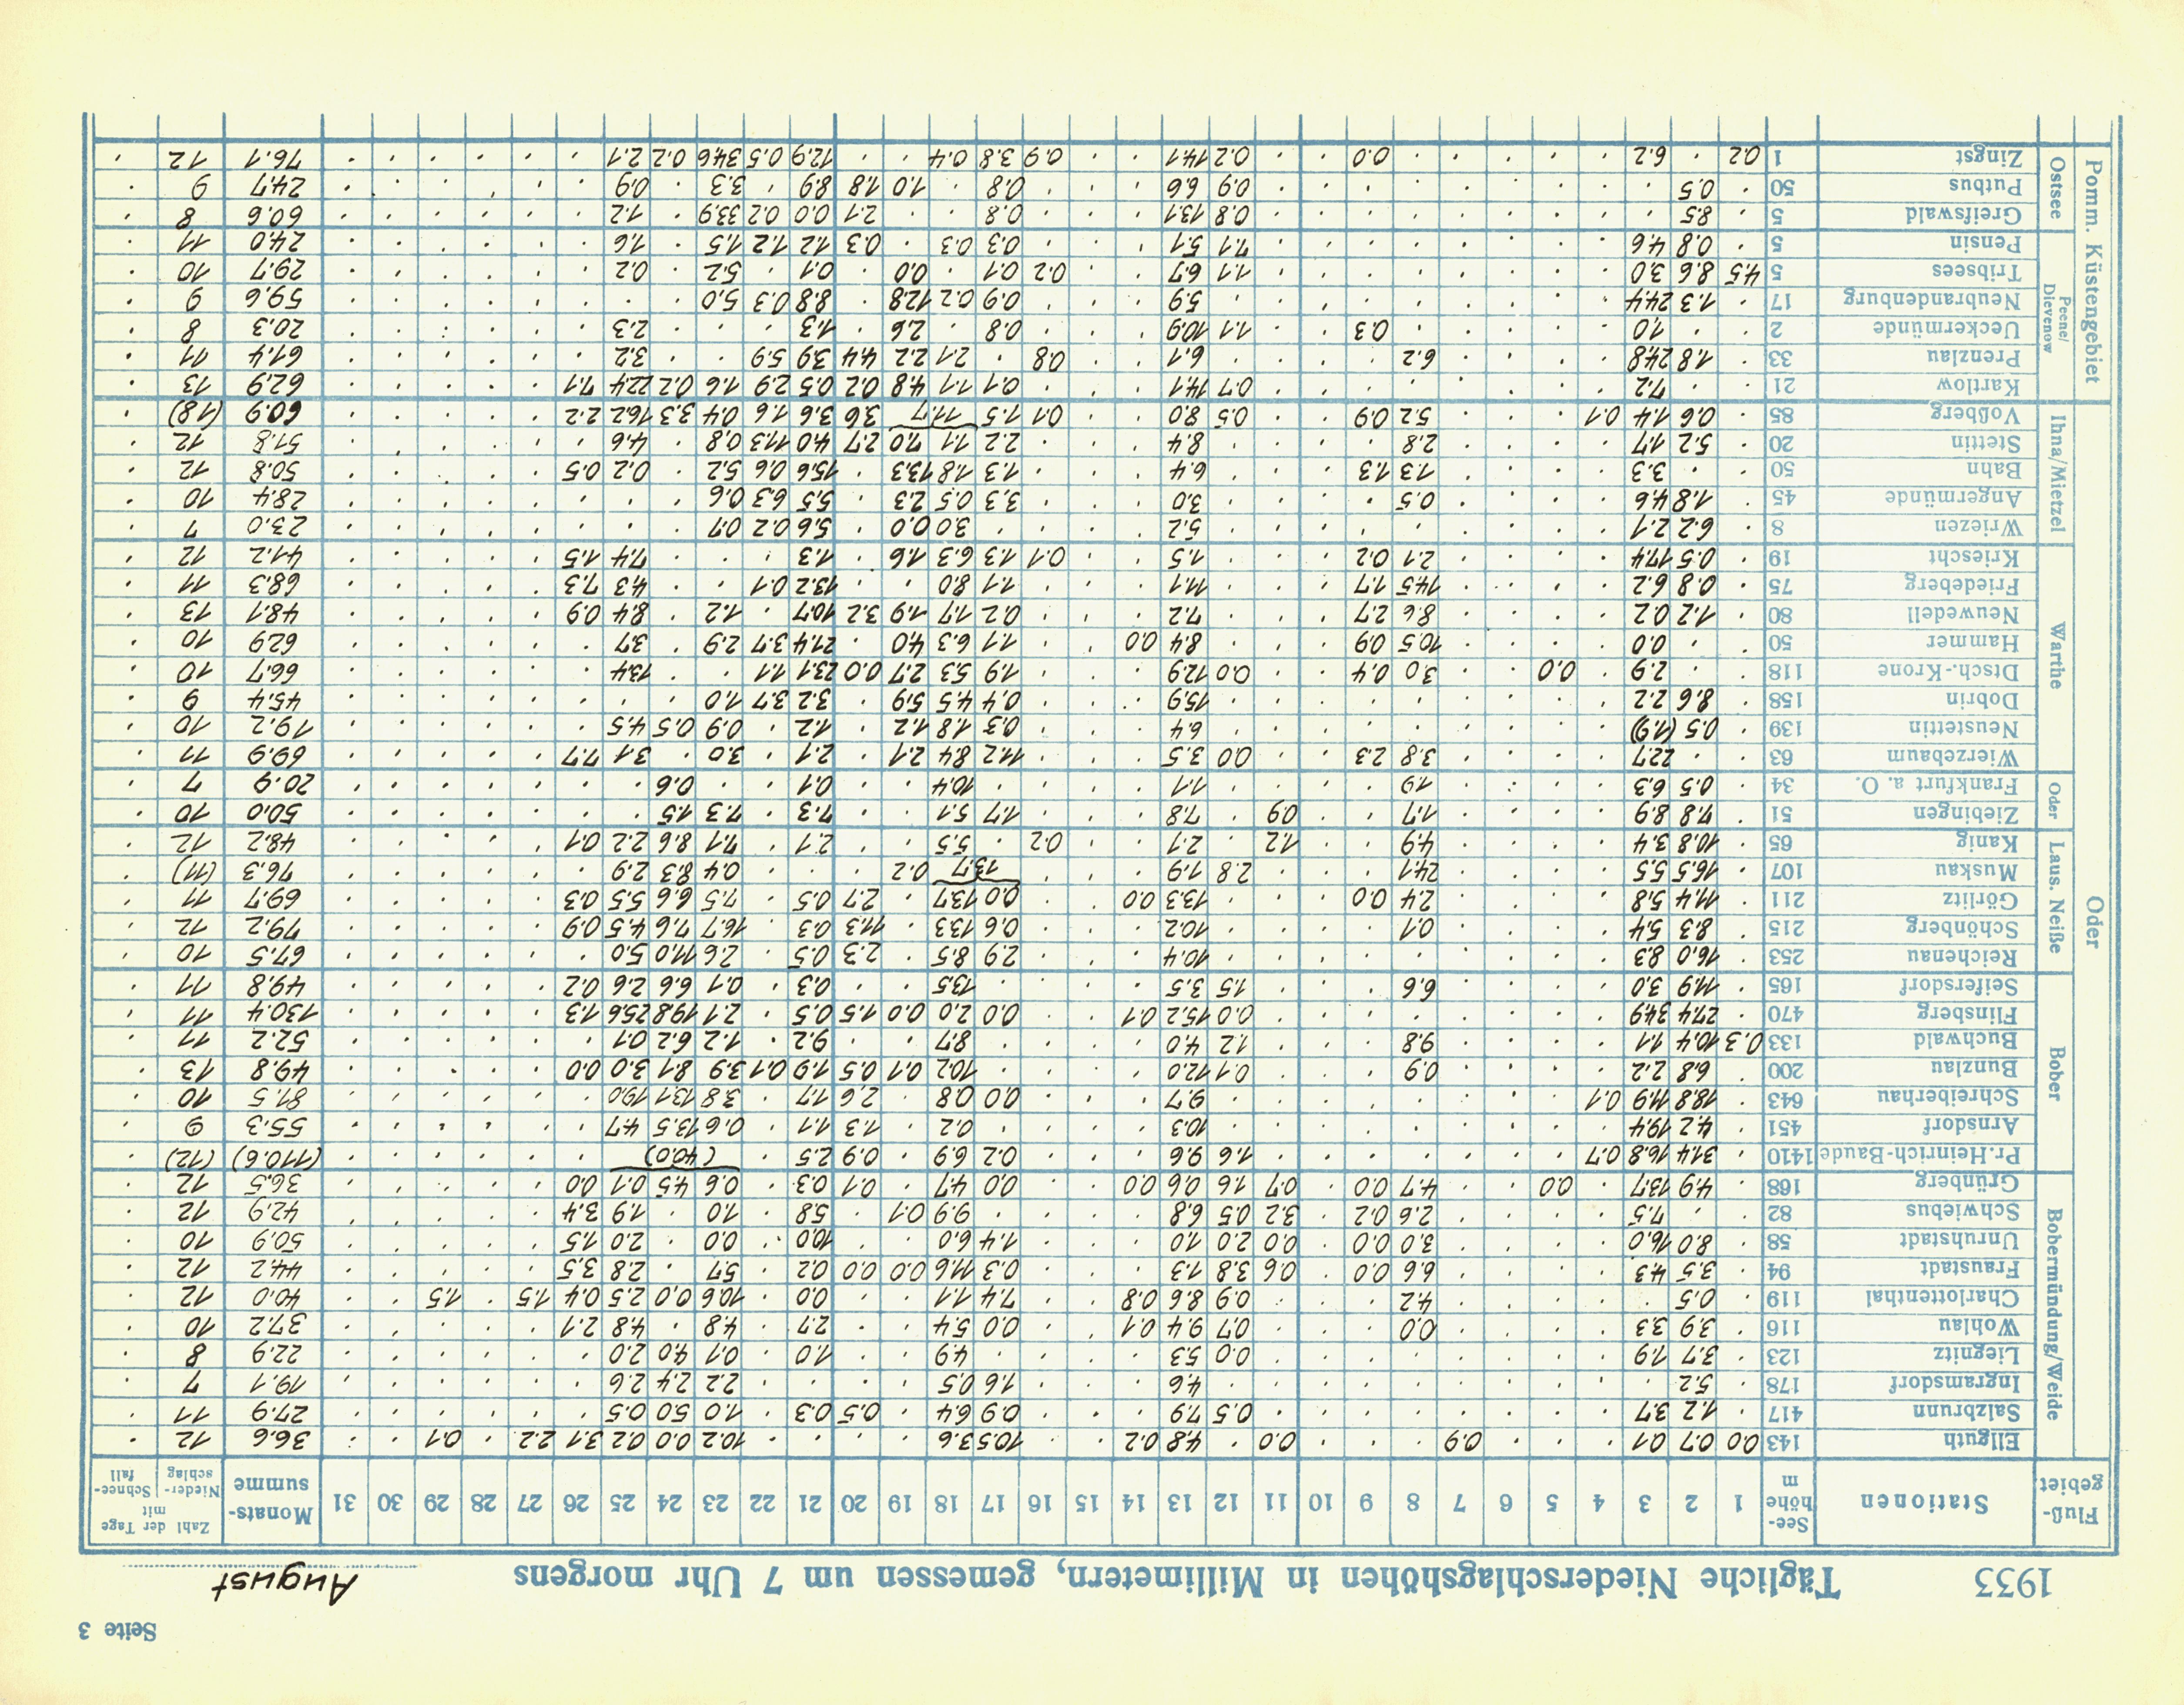 Seite 3
1933 Tägliche Niederschlagshöhen in Millimetern, gemessen um 7 Uhr morgens August
Fluß-gebiet Stationen See-höhe m 1 2 3 4 5 6 7 8 9 10 11 12 13 14 15 16 17 18 19 20 21 22 23 24 25 26 27 28 29 30 31 Monats-summe Zahl der Tage mit Nieder-schlag Schnee-fall
Oder
Bobermündung/Weide
Ellguth 143 0.0 0.7 0.1 . . . 0.9 . . . 0.0 . 4.8 0.2 . . 10.5 3.6 . . . . 10.2 0.0 0.2 3.1 2.2 . 0.1 . . 36.6 12 .
Salzbrunn 417 . 1.2 3.7 . . . . . . . . 0.5 7.9 . . . 0.9 6.4 . 0.5 0.3 . 1.0 5.0 0.5 . . . . . . 27.9 11 .
Ingramsdorf 178 . 5.2 . . . . . . . . . . 4.6 . . . 1.6 0.5 . . . . 2.2 2.4 2.6 . . . . . . 19.1 7 .
Liegnitz 123 . 3.7 1.9 . . . . . . . . 0.0 5.3 . . . . 4.9 . . 1.0 . 0.1 4.0 2.0 . . . . . . 22.9 8 .
Wohlau 116 . 3.9 3.3 . . . . 0.0 . . . 0.7 9.4 0.1 . . 0.0 5.4 . . 2.7 . 4.8 . 4.8 2.1 . . . . . 37.2 10 .
Charlottenthal 119 . 0.5 . . . . . 4.2 . . . 0.9 8.6 0.8 . . 7.4 1.1 . . 0.0 . 10.6 0.0 2.5 0.4 1.5 . 1.5 . . 40.0 12 .
Fraustadt 94 . 3.5 4.3 . . . . 6.6 0.0 . 0.6 3.8 1.3 . . . 0.3 11.6 0.0 0.0 0.2 . 5.7 . 2.8 3.5 . . . . . 44.2 12 .
Unruhstadt 58 . 8.0 16.0 . . . . 3.0 0.0 . 0.0 2.0 1.0 . . . 1.4 6.0 . . 10.0 . 0.0 . 2.0 1.5 . . . . . 50.9 10 .
Schwiebus 82 . . 7.5 . . . . 2.6 0.2 . 3.2 0.5 6.8 . . . . 9.9 0.1 . 5.8 . 1.0 . 1.9 3.4 . . . . . 42.9 12 .
Grünberg 168 . 4.9 13.7 . 0.0 . . 4.7 0.0 . 0.7 1.6 0.6 0.0 . . 0.0 4.7 . 0.1 0.3 . 0.6 4.5 0.1 0.0 . . . . . 36.5 12 .
Bober
Pr.Heinrich-Baude 1410 . 31.4 16.8 0.7 . . . . . . . 1.6 9.6 . . . 0.2 6.9 . 0.9 2.5 . (40.0) . . . . . . (110.6) (12) .
Arnsdorf 451 . 4.2 19.4 . . . . . . . . . 10.3 . . . . 0.2 . 1.3 1.1 . 0.6 13.5 4.7 . . . . . . 55.3 9 .
Schreiberhau 643 . 18.8 11.9 0.1 . . . . . . . . 9.7 . . . 0.0 0.8 . 2.6 1.7 . 3.8 13.1 19.0 . . . . . . 81.5 10 .
Bunzlau 200 . 6.8 2.2 . . . . 0.9 . . . 0.1 12.0 . . . . 10.2 0.1 0.5 1.9 0.1 3.9 8.1 3.0 0.0 . . . . . 49.8 13 .
Buchwald 133 0.3 10.4 1.1 . . . . 9.8 . . . 1.2 4.0 . . . . 8.7 . . 9.2 . 1.2 6.2 0.1 . . . . . . 52.2 11 .
Flinsberg 470 . 27.4 34.9 . . . . . . . . 0.0 15.2 0.1 . . 0.0 2.0 0.0 1.5 0.5 . 2.1 19.8 25.6 1.3 . . . . . 130.4 11 .
Seifersdorf 165 . 11.9 3.0 . . . . 6.6 . . . 1.5 3.5 . . . . 13.5 . . 0.3 . 0.1 6.6 2.6 0.2 . . . . . 49.8 11 .
Laus. Neiße
Reichenau 253 . 16.0 8.3 . . . . . . . . . 10.4 . . . 2.9 8.5 . 2.3 0.5 . 2.6 11.0 5.0 . . . . . . 67.5 10 .
Schönberg 215 . 8.3 5.4 . . . . 0.1 . . . . 10.2 . . . 0.6 13.3 . 11.3 0.3 . 16.7 7.6 4.5 0.9 . . . . . 79.2 12 .
Görlitz 211 . 11.4 5.8 . . . . 2.4 0.0 . . . 13.3 0.0 . . 0.0 13.7 . 2.7 0.5 . 7.5 6.6 5.5 0.3 . . . . . 69.7 11 .
Muskau 107 . 16.5 5.5 . . . . 24.1 . . . 2.8 1.9 . . . 13.7 0.2 . . . 0.4 8.3 2.9 . . . . . . 76.3 (11) .
Kanig 65 . 10.8 3.4 . . . . 4.9 . . 1.2 . 2.1 . . 0.2 . 5.5 . . 2.1 . 7.1 8.6 2.2 0.1 . . . . . 48.2 12 .
Oder
Ziebingen 51 . 7.8 8.9 . . . . 1.7 . . 0.9 . 7.8 . . . 1.7 5.1 . . 7.3 . 7.3 1.5 . . . . . . . 50.0 10 .
Frankfurt a. O. 34 . 0.5 6.3 . . . . 1.9 . . . . 1.1 . . . . 10.4 . . 0.1 . . 0.6 . . . . . . . 20.9 7 .
Warthe
Wierzebaum 63 . . 22.7 . . . . 3.8 2.3 . . 0.0 3.5 . . . 11.2 8.4 2.1 . 2.1 . 3.0 . 3.1 7.7 . . . . . 69.9 11 .
Neustettin 139 . 0.5 (1.9) . . . . . . . . . 6.4 . . . 0.3 1.8 1.2 . 1.2 . 0.9 0.5 4.5 . . . . . . 19.2 10 .
Dobrin 158 . 8.6 2.2 . . . . . . . . . 15.9 . . . 0.4 4.5 5.9 . 3.2 3.7 1.0 . . . . . . . . 45.4 9 .
Dtsch.-Krone 118 . . 2.9 . 0.0 . . 3.0 0.4 . . 0.0 12.9 . . . 1.9 5.3 2.7 0.0 23.1 1.1 . . 13.4 . . . . . . 66.7 10 .
Hammer 50 . . 0.0 . . . . 10.5 0.9 . . . 8.4 0.0 . . 1.1 6.3 4.0 . 21.4 3.7 2.9 . 3.7 . . . . . . 62.9 10 .
Neuwedell 80 . 1.2 0.2 . . . . 8.6 2.7 . . . 7.2 . . . 0.2 1.7 1.9 3.2 10.7 . 1.2 . 8.4 0.9 . . . . . 48.1 13 .
Friedeberg 75 . 0.8 6.2 . . . . 14.5 1.7 . . . 11.1 . . . 1.1 8.0 . . 13.2 0.1 . . 4.3 7.3 . . . . . 68.3 11 .
Kriescht 19 . 0.5 17.4 . . . . 2.1 0.2 . . . 1.5 . . 0.1 1.3 6.3 1.6 . 1.3 . . . 7.4 1.5 . . . . . 41.2 12 .
Ihna/Mietzel
Wriezen 8 . 6.2 2.1 . . . . . . . . . 5.2 . . . . 3.0 0.0 . 5.6 0.2 0.7 . . . . . . . . 23.0 7 .
Angermünde 45 . 1.8 4.6 . . . . 0.5 . . . . 3.0 . . . 3.3 0.5 2.3 . 5.5 6.3 0.6 . . . . . . . . 28.4 10 .
Bahn 50 . . 3.3 . . . . 1.3 1.3 . . . 6.4 . . . 1.3 1.8 13.3 . 15.6 0.6 5.2 . 0.2 0.5 . . . . . 50.8 12 .
Stettin 20 . 5.2 1.7 . . . . 2.8 . . . . 8.4 . . . 2.2 1.1 7.0 2.7 4.0 11.3 0.8 . 4.6 . . . . . . 51.8 12 .
Voßberg 85 . 0.6 1.4 0.1 . . . 5.2 0.9 . . 0.5 8.0 . . 0.1 1.5 11.7 3.6 3.6 1.6 0.4 3.3 16.2 2.2 . . . . . 60.9 (18) .
Pomm. Küstengebiet
Peene/Dievenow
Kartlow 21 . . 7.2 . . . . . . . . 0.7 14.1 . . . 0.1 1.1 4.8 0.2 0.5 2.9 1.6 0.2 22.4 7.1 . . . . . 62.9 13 .
Prenzlau 33 . 1.8 24.8 . . . . 6.2 . . . . 6.1 . . 0.8 . 2.1 2.2 4.4 3.9 5.9 . . 3.2 . . . . . . 61.4 11 .
Ueckermünde 2 . . 1.0 . . . . . 0.3 . . 1.1 10.9 . . . 0.8 . 2.6 . 1.3 . . . 2.3 . . . . . . 20.3 8 .
Neubrandenburg 17 . 1.3 24.4 . . . . . . . . . 5.9 . . . 0.9 0.2 12.8 . 8.8 0.3 5.0 . . . . . . . . 59.6 9 .
Tribsees 5 4.5 8.6 3.0 . . . . . . . . 1.1 6.7 . . 0.2 0.1 . 0.0 . 0.1 . 5.2 . 0.2 . . . . . . 29.7 10 .
Pensin 5 . 0.8 4.6 . . . . . . . . 7.1 5.1 . . . 0.3 0.3 . 0.3 1.2 1.2 1.5 . 1.6 . . . . . . 24.0 11 .
Ostsee
Greifswald 5 . 8.5 . . . . . . . . . 0.8 13.1 . . . 0.8 . . 2.1 0.0 0.2 33.9 . 1.2 . . . . . . 60.6 8 .
Putbus 50 . 0.5 . . . . . . . . . 0.9 6.6 . . . 0.8 . 1.0 1.8 8.9 . 3.3 . 0.9 . . . . . . 24.7 9 .
Zingst 1 0.2 . 6.2 . . . . . 0.0 . . 0.2 14.1 . . 0.9 3.8 0.4 . . 12.9 0.5 34.6 0.2 2.1 . . . . . . 76.1 12 .